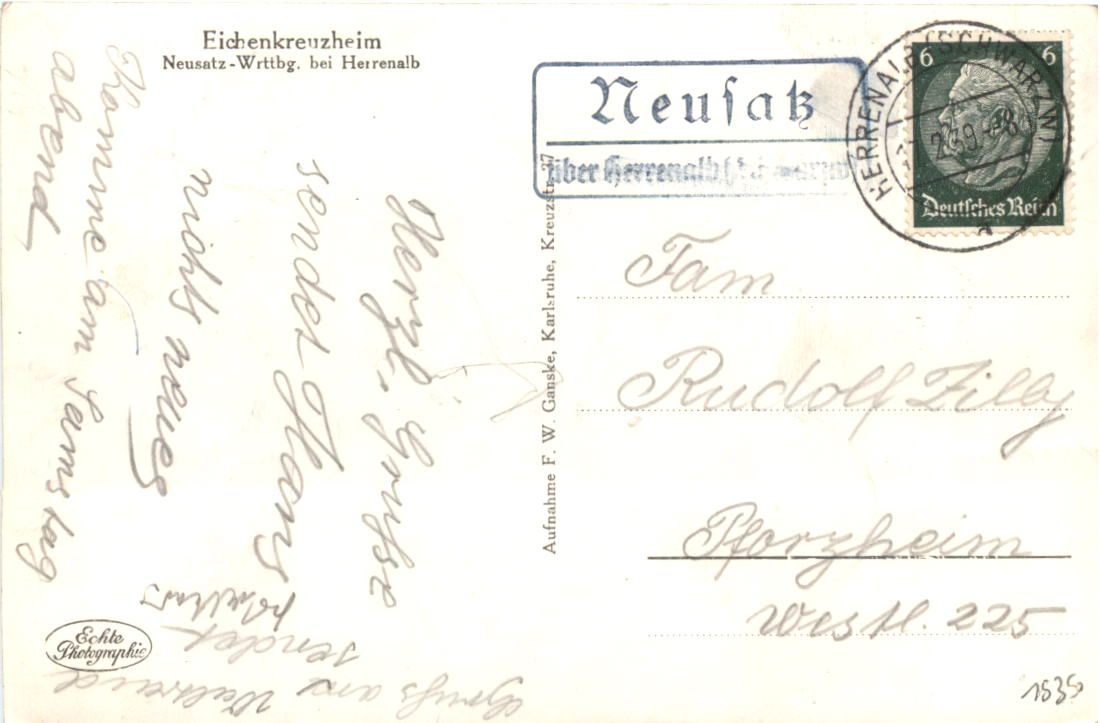 Eichenkreuzheim
Neusatz-Wrttbg. bei Herrenalb
Neusatz
über Herrenalb
HERRENALB (SCHWARZW)
6 6
Deutsches Reich
a
Herzl. Grüsse
sendet Hans
nichts neues
Komme am Samstag
abend
Gruß aus
sendet
Echte
Photographie
Aufnahme F. W. Ganske, Karlsruhe, Kreuzstr. 27
Fam
Rudolf Zilly
Pforzheim
Westl. 225